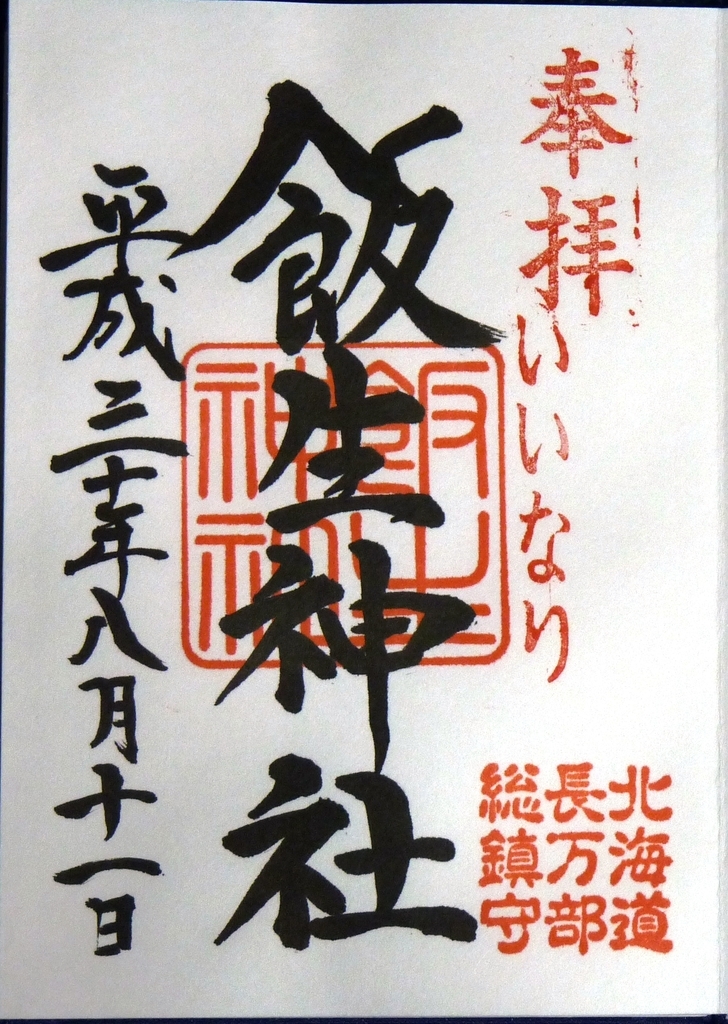 奉拝
いいなり
北海道
長万部
総鎮守
飯生神社
飯生
神社
平成三十年八月十一日